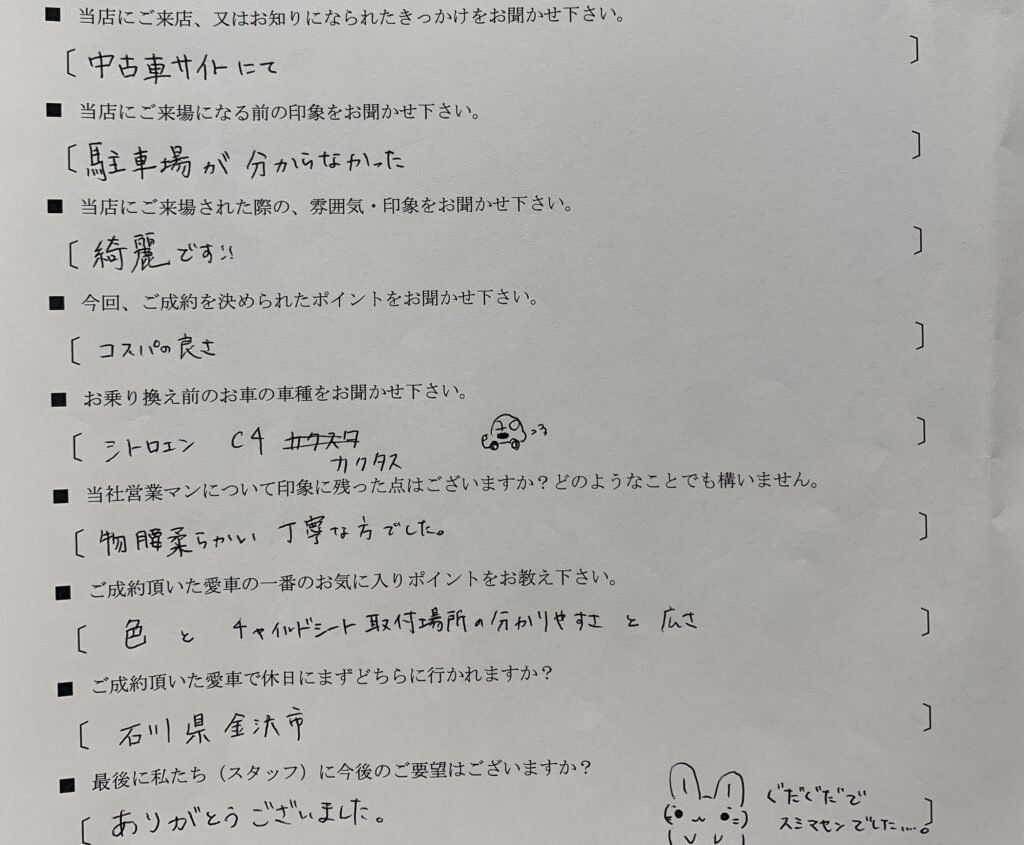 ■ 当店にご来店、又はお知りになられたきっかけをお聞かせ下さい。
〔 中古車サイトにて 〕
■ 当店にご来場になる前の印象をお聞かせ下さい。
〔 駐車場が 分からなかった 〕
■ 当店にご来場された際の、雰囲気・印象をお聞かせ下さい。
〔 綺麗です!! 〕
■ 今回、ご成約を決められたポイントをお聞かせ下さい。
〔 コスパの良さ 〕
■ お乗り換え前のお車の車種をお聞かせ下さい。
〔 シトロエン C4 カクスタ 〕
カクタス
■ 当社営業マンについて印象に残った点はございますか？どのようなことでも構いません。
〔 物腰柔らかい 丁寧な方でした。 〕
■ ご成約頂いた愛車の一番のお気に入りポイントをお教え下さい。
〔 色 と チャイルドシート 取付場所の分かりやすさ と 広さ 〕
■ ご成約頂いた愛車で休日にまずどちらに行かれますか？
〔 石川県 金沢市 〕
■ 最後に私たち（スタッフ）に今後のご要望はございますか？
〔 ありがとうございました。 ぐだぐだで 〕
スミマセンでした....。